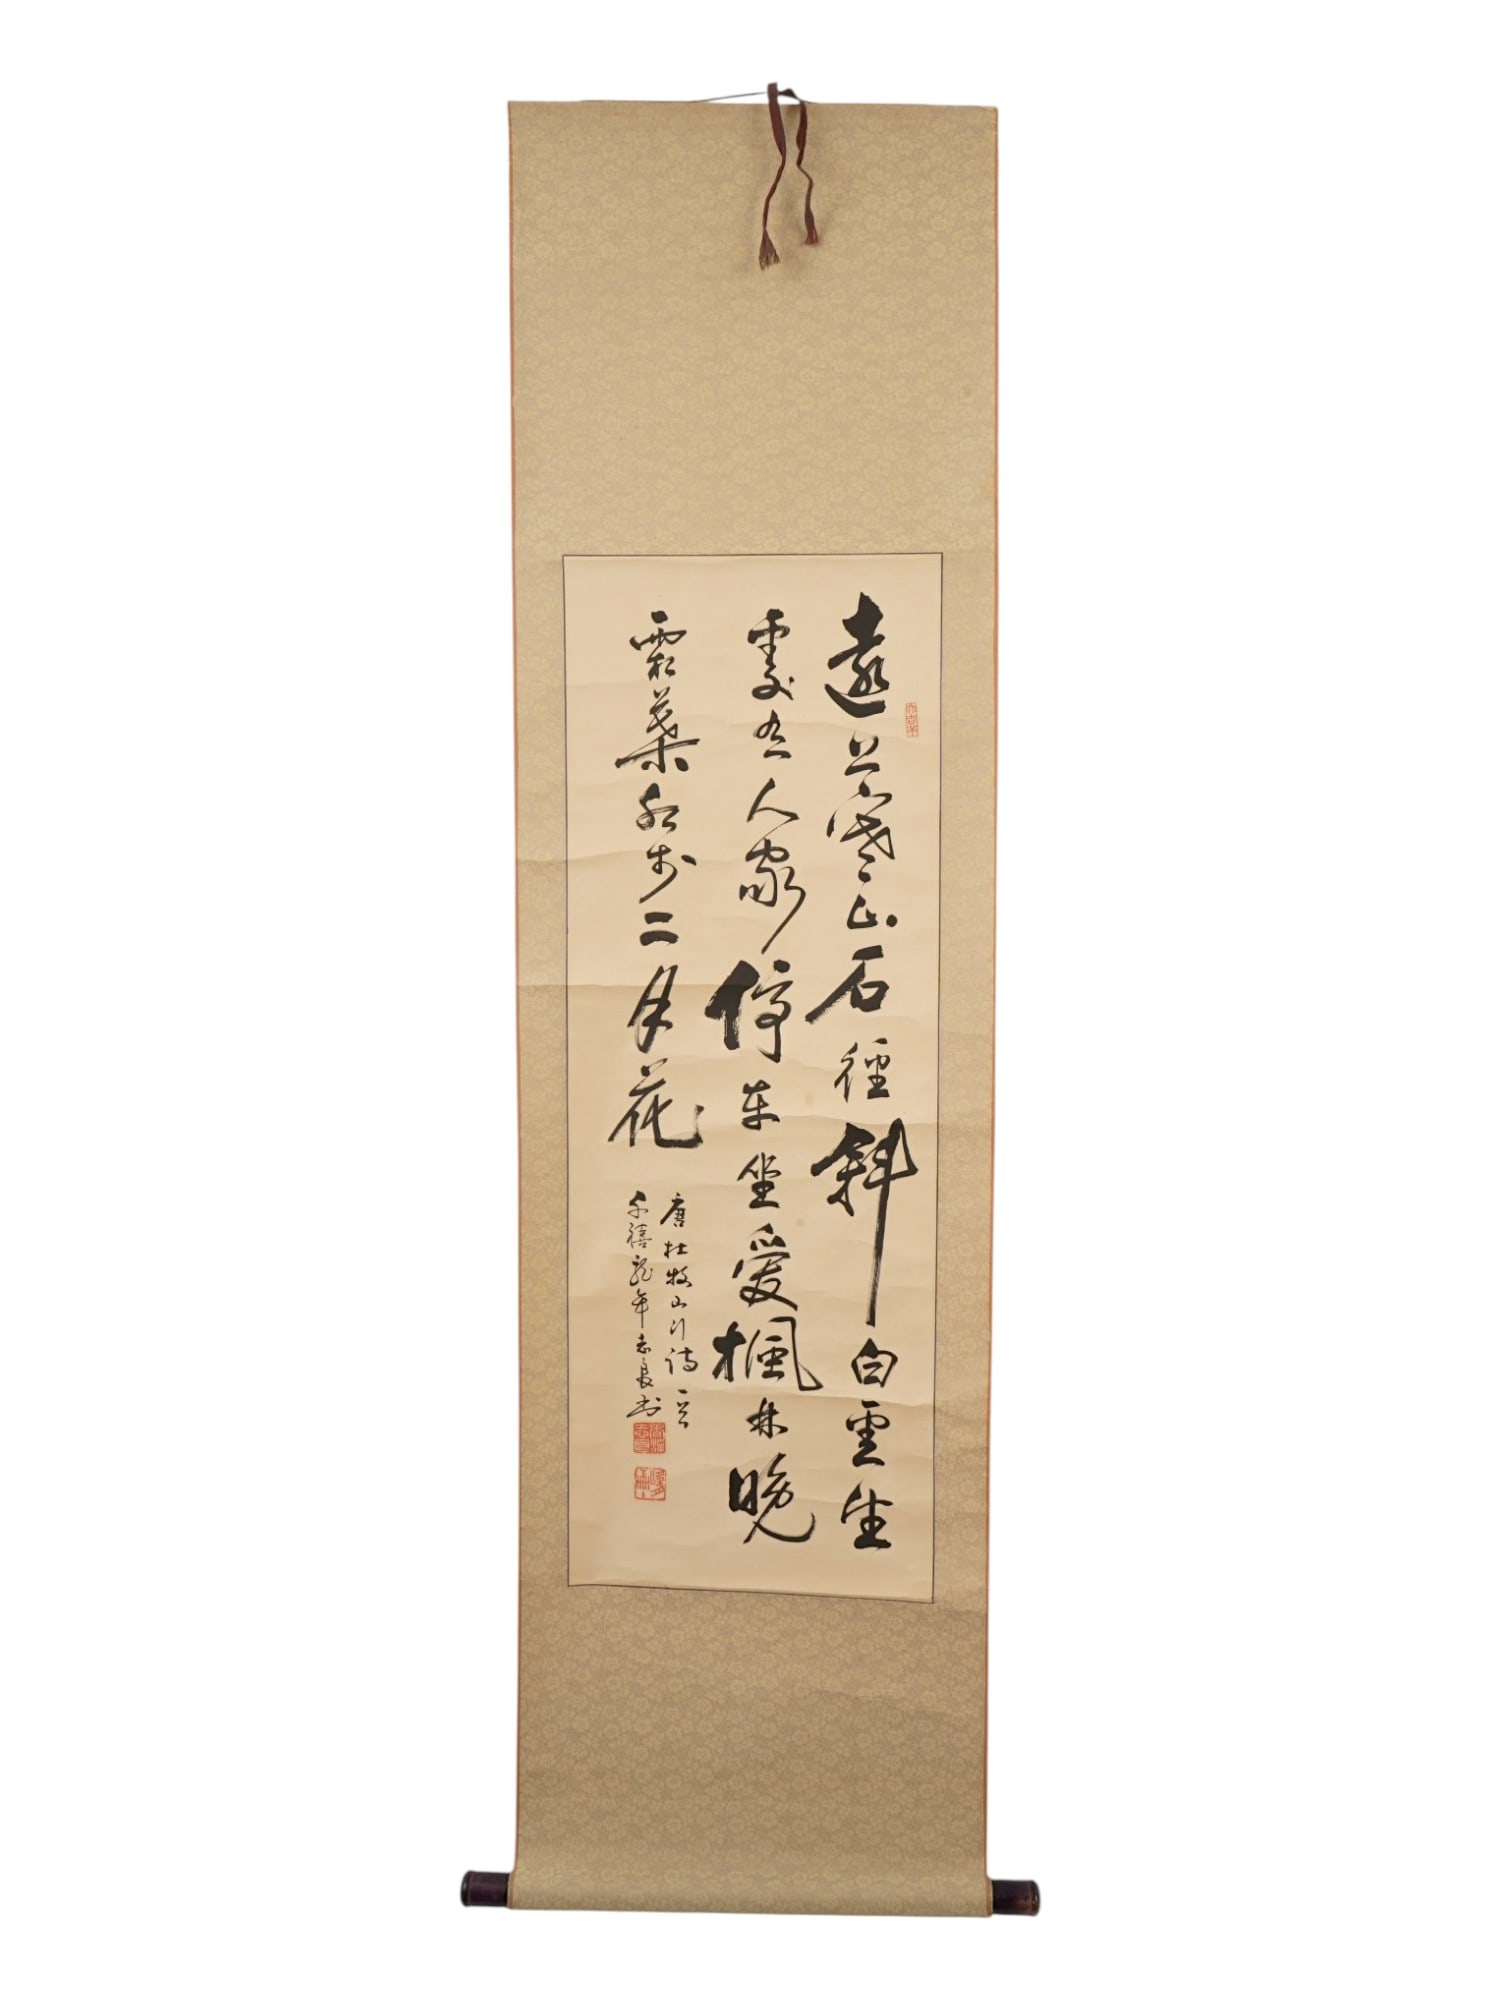 遠上寒山石徑斜白雲生
處有人家停車坐愛楓林晚
霜葉紅於二月花
唐杜牧山行詩一首
千禧龍年志良书